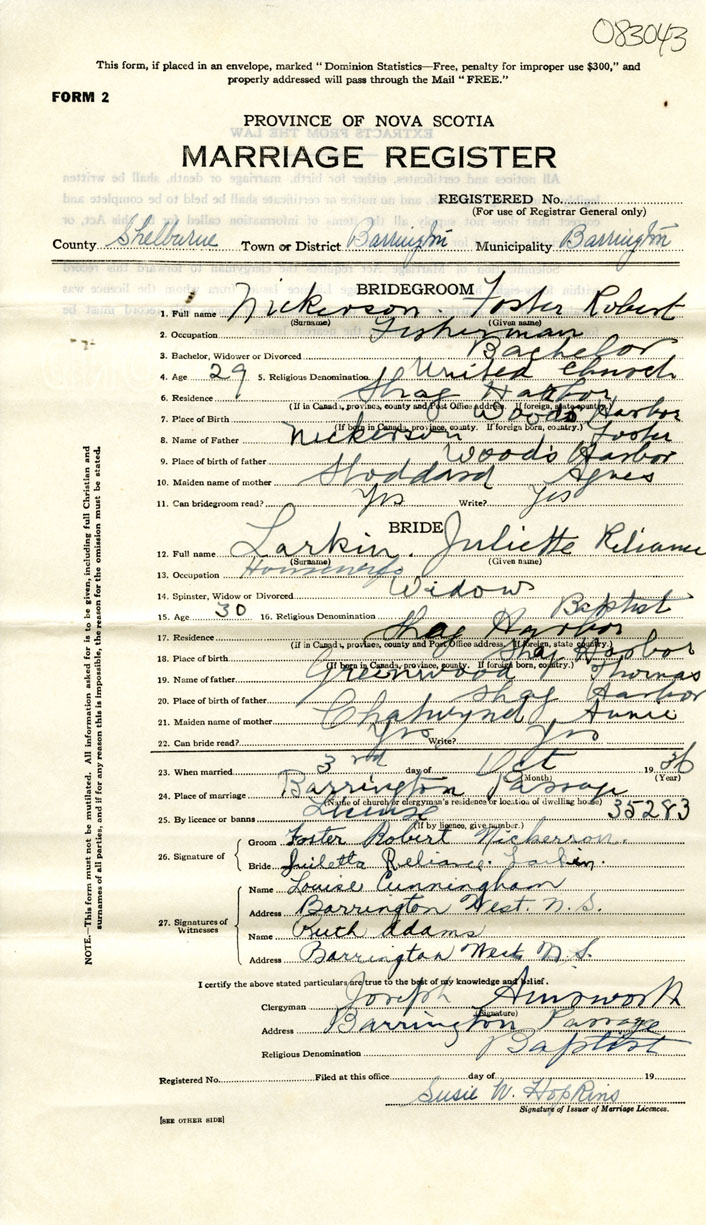 083043
This form, if placed in an envelope, marked "Dominion Statistics—Free, penalty for improper use $300," and
properly addressed will pass through the Mail "FREE."
FORM 2
PROVINCE OF NOVA SCOTIA
MARRIAGE REGISTER
REGISTERED No.
(For use of Registrar General only)
County Shelburne Town or District Barrington Municipality Barrington
BRIDEGROOM
1. Full name Nickerson. Foster Robert
(Surname) (Given name)
2. Occupation Fisherman
3. Bachelor, Widower or Divorced Bachelor
4. Age 29 5. Religious Denomination United Church
6. Residence Shag Harbor
(If in Canada, province, county and Post Office address. If foreign, state country.)
7. Place of Birth Woods Harbor
(If born in Canada, province, county. If foreign born, country.)
8. Name of Father Nickerson Foster
9. Place of birth of father Woods Harbor
10. Maiden name of mother Stoddard Agnes
11. Can bridegroom read? Yes Write? Yes
BRIDE
12. Full name Larkin. Juliette Reliance
(Surname) (Given name)
13. Occupation Housewife
14. Spinster, Widow or Divorced Widow
15. Age 30 16. Religious Denomination Baptist
17. Residence Shag Harbor
(If in Canada, province, county and Post Office address. If foreign, state country.)
18. Place of birth Shag Harbor
(If born in Canada, province, county. If foreign born, country.)
19. Name of father Greenwood Thomas
20. Place of birth of father Shag Harbor
21. Maiden name of mother Chatwynd Annie
22. Can bride read? Yes Write? Yes
23. When married 3rd day of Oct 1936
(Month) (Year)
24. Place of marriage Barrington Passage
(Name of church or clergyman's residence or location of dwelling house)
25. By licence or banns License 35283
(If by licence, give number.)
26. Signature of
Groom Foster Robert Nickerson.
Bride Juiletta Reliance. Larkin.
27. Signatures of Witnesses
Name Louise Cunningham
Address Barrington West. N.S.
Name Ruth Adams
Address Barrington West N.S.
I certify the above stated particulars are true to the best of my knowledge and belief.
Clergyman Joseph Ainsworth
(Signature)
Address Barrington Passage
Religious Denomination Baptist
Registered No. Filed at this office day of 19
Susie W. Hopkins
Signature of Issuer of Marriage Licences.
[SEE OTHER SIDE]
NOTE.—This form must not be mutilated. All information asked for is to be given, including full Christian and
surnames of all parties, and if for any reason this is impossible, the reason for the omission must be stated.